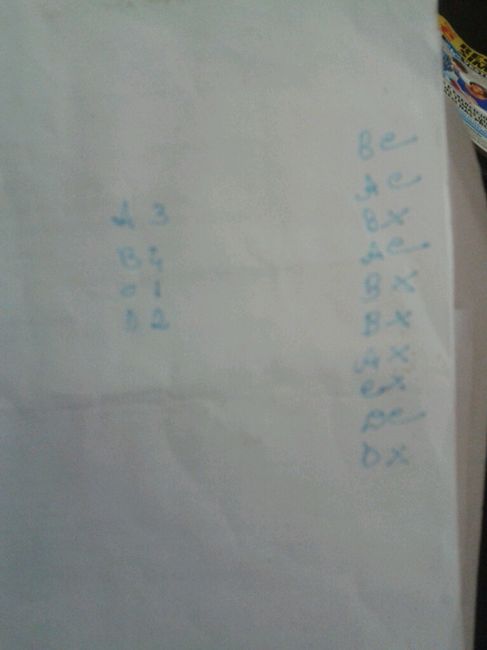 A 3
B 4
C 1
D 2
B ✓
A ✓
B X
A ✓
B X
B X
A X
C X
D ✓
D X